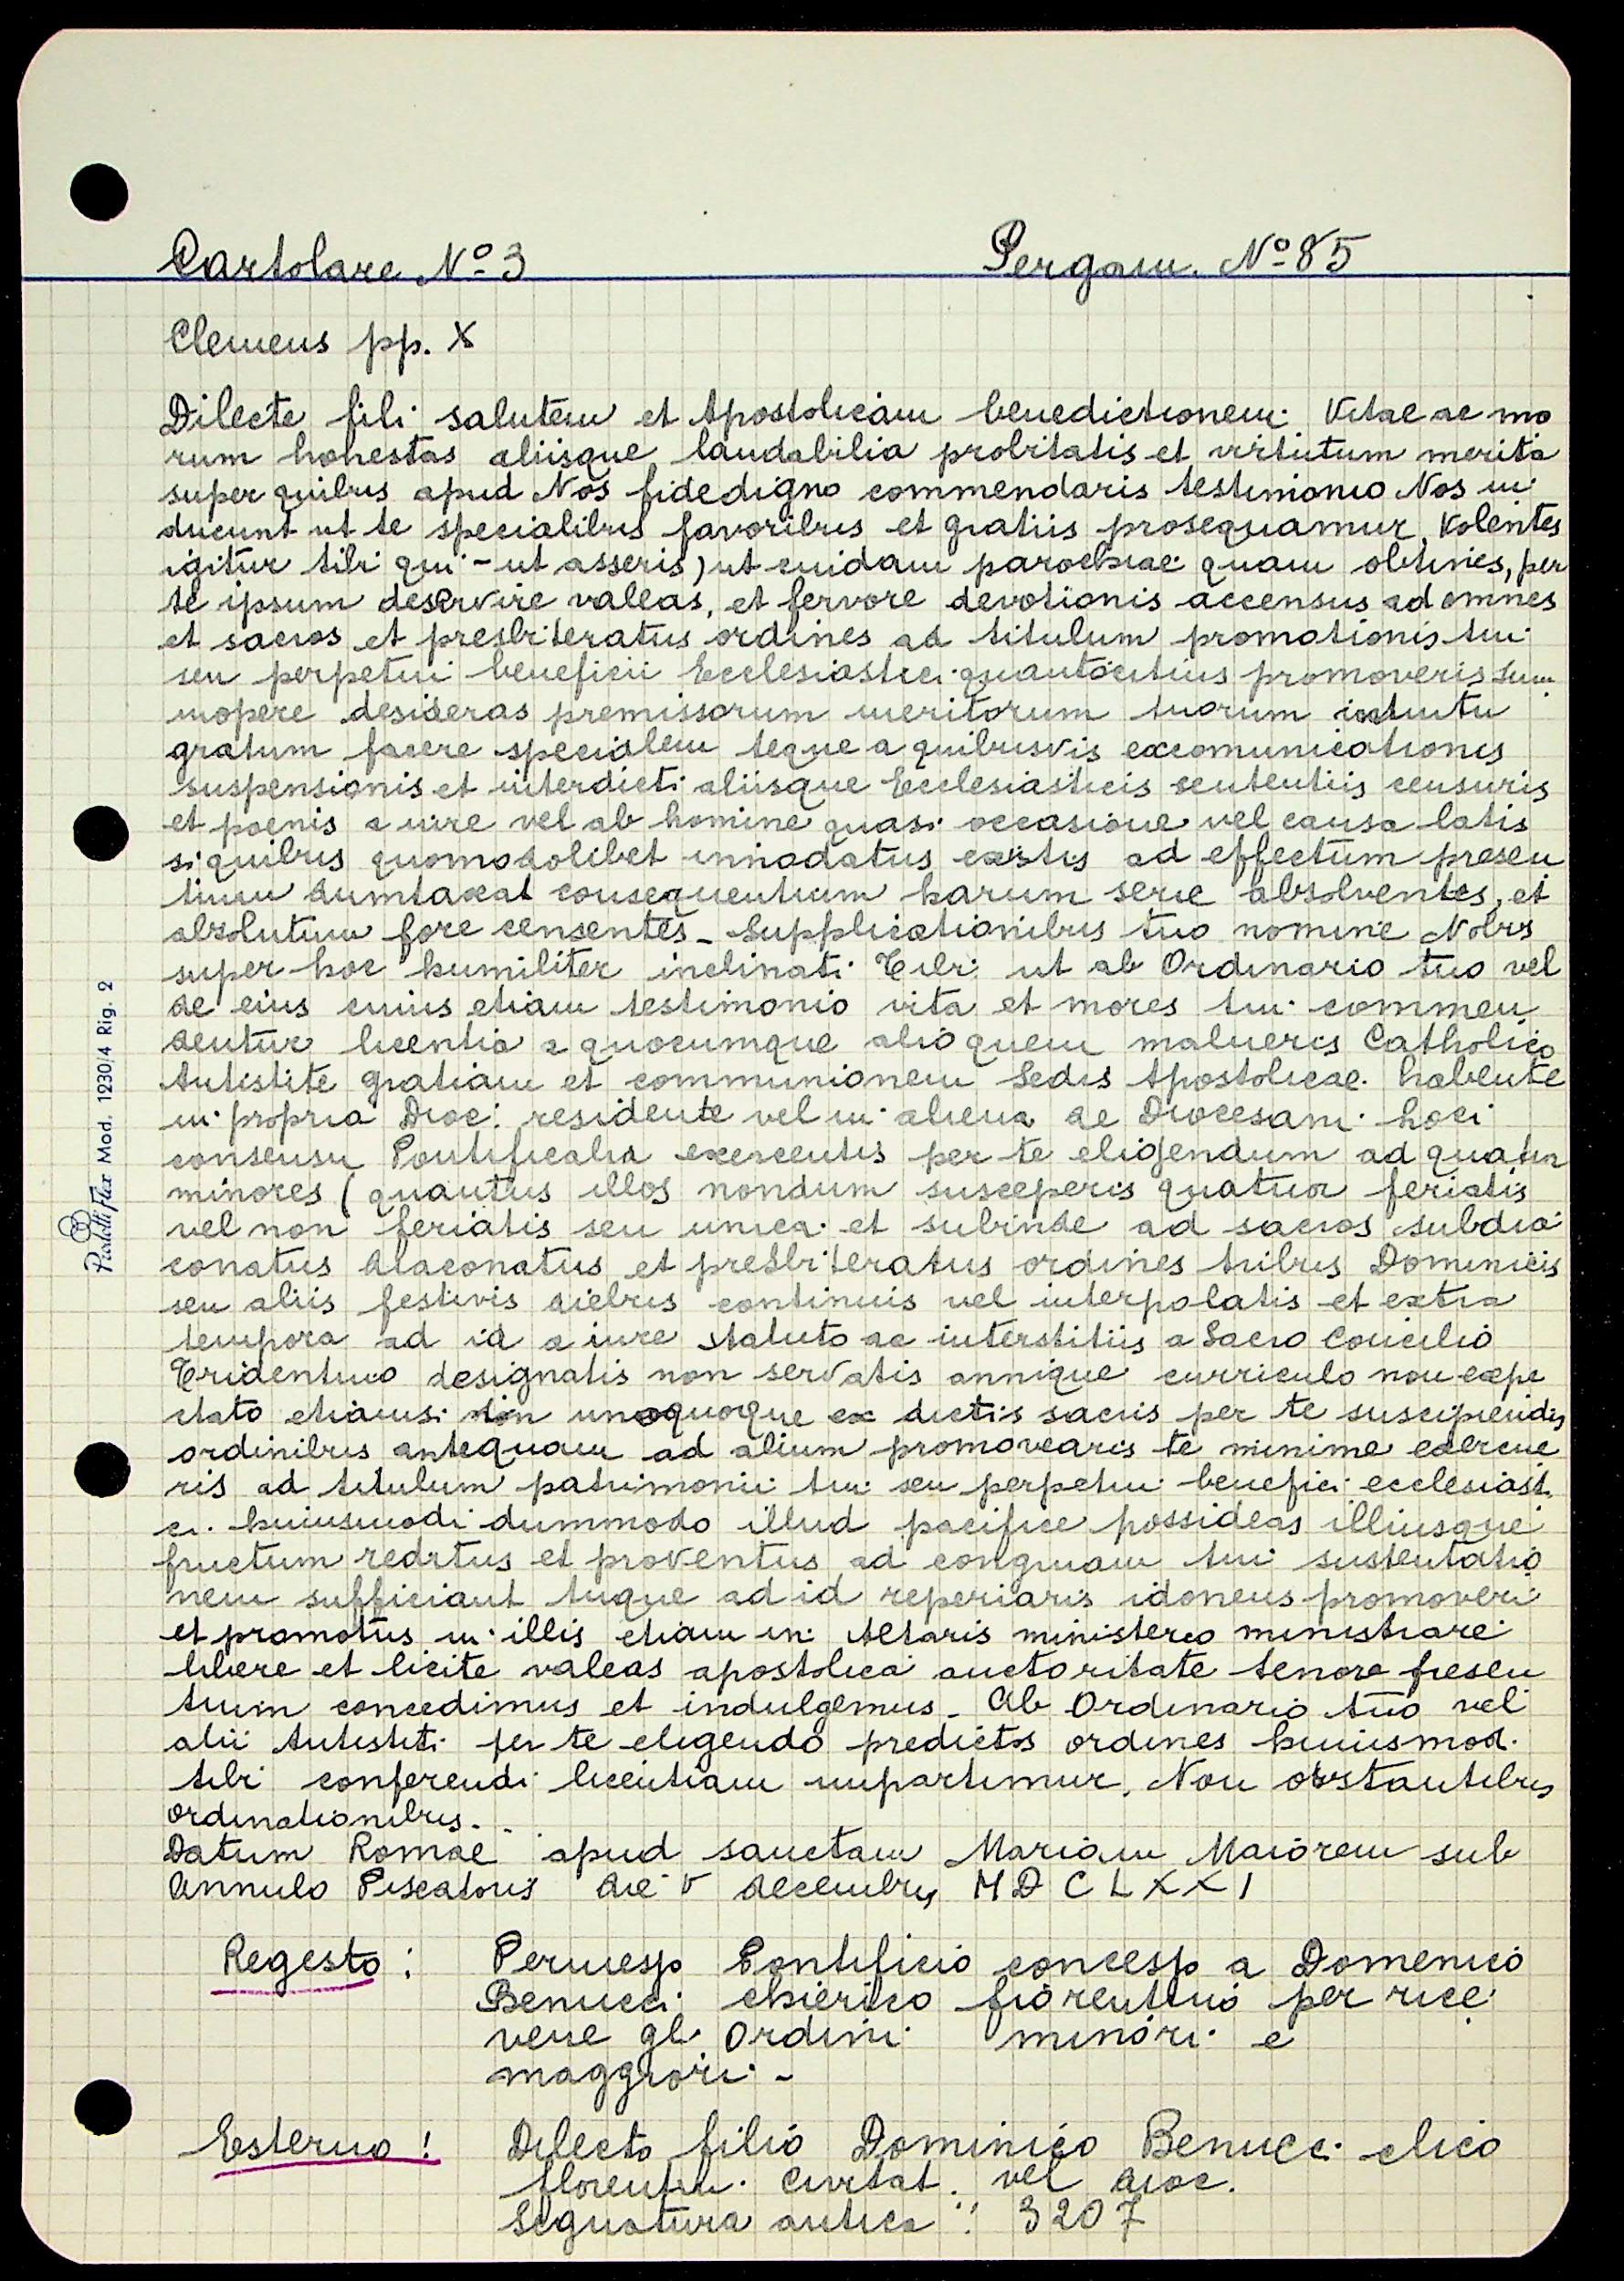 Cartolare Nº 3 Pergam. Nº 85
Clemens pp. X
Dilecte fili salutem et Apostolicam benedictionem. Vitae ac mo
rum hohestas aliisque laudabilia probitatis et virtutum merita
super quibus apud Nos fidedigno commendaris testimonio Nos in
ducunt ut te specialibus favoribus et gratiis prosequamur, Volentes
igitur tibi qui - ut asseris) ut cuidam parochiae quam obtines, per
te ipsum deservire valeas, et fervore devotionis accensus ad omnes
et sacros et presbiteratus ordines ad titulum promotionis tui
seu perpetui beneficii Ecclesiastici quantocitius promoveris sum
mopere desideras premissorum meritorum tuorum intuitu
gratum facere specialem teque a quibusvis excomunicationis
suspensionis et interdicti aliisque Ecclesiasticis sententiis censuris
et poenis a iure vel ab homine quasi occasione vel causa latis
si quibus quomodolibet innodatus existis ad effectum presen
tium dumtaxat consequentium harum serie absolventes, et
absolutum fore censentes - Supplicationibus tuo nomine Nobis
super hoc humiliter inclinati Tibi ut ab Ordinario tuo vel
de eius cuius etiam testimonio vita et mores tui commen
dentur licentia a quocumque alio quem malueris Catholico
Antistite gratiam et communionem Sedis Apostolicae habente
in propria Dioc: residente vel in aliena de Diocesani loci
consensu Pontificalia exercentis per te eligendum ad quatur
minores (quantus illos nondum susceperis quatuor feriatis
vel non feriatis seu unica et subinde ad sacros subdia
conatus diaconatus et presbiteratus ordines tribus Dominicis
seu aliis festivis diebus continuis vel interpolatis et extra
tempora ad id a iure statuto ac interstitiis a Sacro Concilio
Tridentino designatis non servatis annique curriculo non expe
ctato etiamsi in unoquoque ex dictis sacris per te suscipiendis
ordinibus antequam ad alium promovearis te minime exercue
ris ad titulum patrimonii tui seu perpetui benefici ecclesiasti
ci. huiusmodi dummodo illud pacifice possideas illiusque
fructum reditus et proventus ad congruam tui sustentatio
nem sufficiant tuque ad id reperiaris idoneus promoveri
et promotus in illis etiam in Altaris ministerio ministrare
libere et licite valeas apostolica auctoritate tenore presen
tium concedimus et indulgemus - Ab Ordinario tuo vel
alii Antistiti per te eligendo predictos ordines huiusmod.
tibi conferendi licentiam impartimur. Non obstantibus
ordinationibus. . .
Datum Romae apud sanctam Mariam Maiorem sub
Annulo Piscatoris die V decembris M D C L X X I
Regesto: Permesso Pontificio concesso a Domenico
Benucci chierico fiorentino per rice
vere gli Ordini minori e
maggiori -
Esterno: Dilecto filio Dominico Benucci clico
florentin. Civitat. vel dioc.
Segnatura antica: 3207
Pialetti Flex Mod. 1230/4 Rig. 2